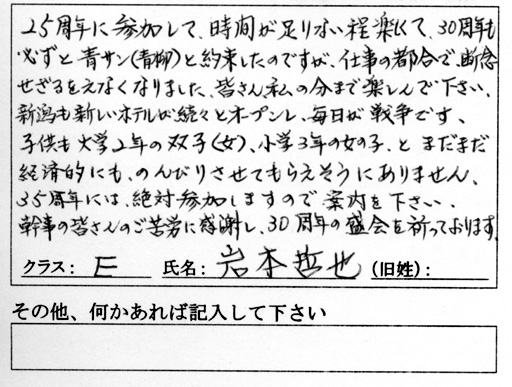 25周年に参加して、時間が足りない程楽しくて、30周年も
必ずと青サン(青柳)と約束したのですが、仕事の都合で、断念
せざるをえなくなりました、皆さん、私の分まで楽しんで下さい、
新潟も新しいホテルが続々とオープンし、毎日が戦争です、
子供も大学2年の双子(女)、小学3年の女の子、とまだまだ
経済的にも、のんびりさせてもらえそうにありません、
35周年には、絶対参加しますので案内を下さい、
幹事の皆さんのご苦労に感謝し、30周年の盛会を祈っております。
クラス: E 氏名: 岩本哲也 (旧姓):
その他、何かあれば記入して下さい